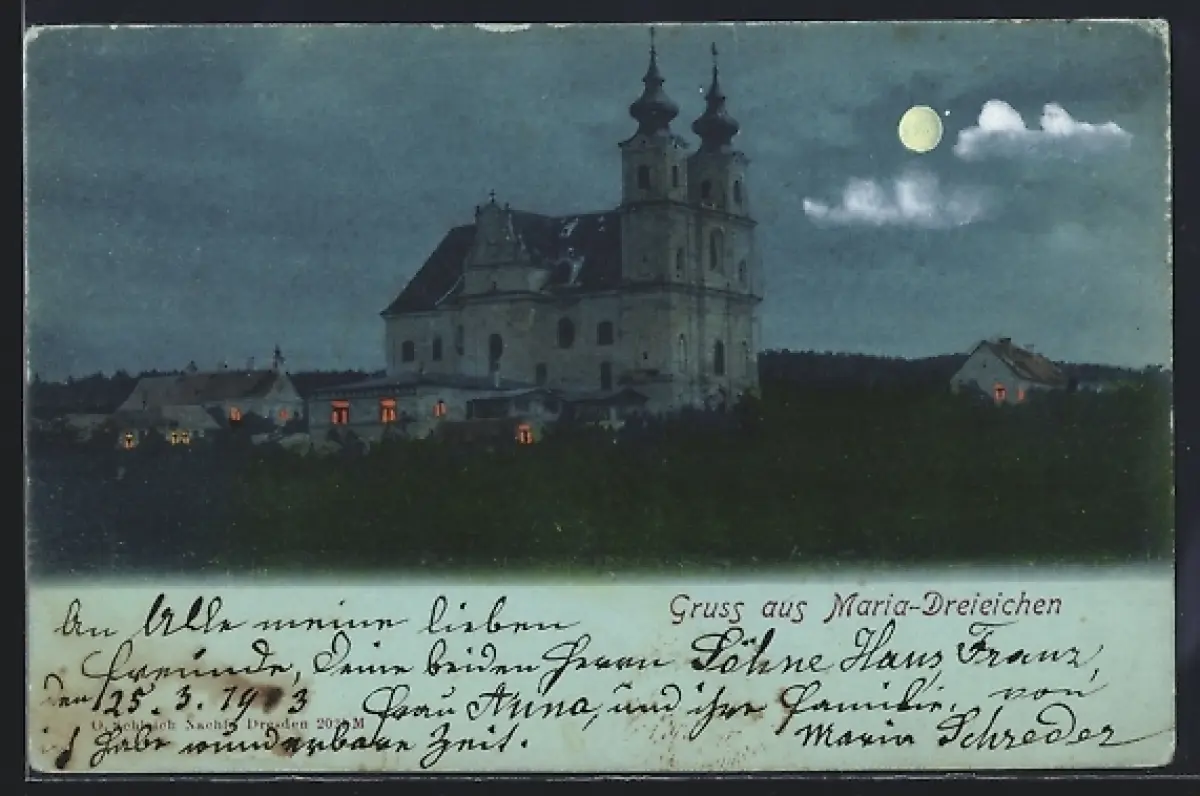 Gruss aus Maria-Dreieichen
An Alle meine lieben
Freunde, Deine beiden Herrn Söhne Hans, Franz,
den 25. 3. 1903 Frau Anna, und ihre Familie, von
O. Schleich Nachf. Dresden
ich habe wunderbare Zeit. Maria Schreder